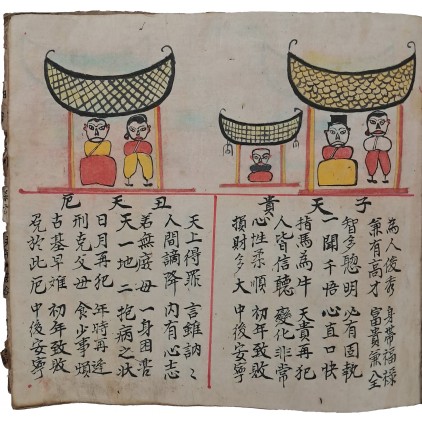 子天貴
為人俊秀 身帶福祿
氣有高才 富貴兼全
智多聰明 必有固執
一聞千悟 心直口快
指馬為牛 天貴再犯
人皆信聽 變化非常
心性柔順 初年致敗
損財多大 中後安寧
丑天厄
天上得罪 言雖訥々
人間謫降 內有心志
若無庶母 一身困苦
天一地二 抱病之狀
日月再犯 年時再逢
刑克父母 食少事煩
古基早難 初年致敗
免於此厄 中後安寧